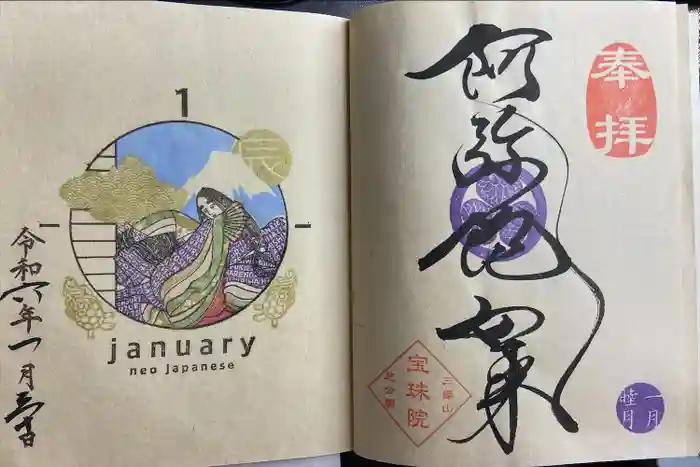 1
辰
january
neo japanese
令和六年一月
奉拝
阿弥陀如来
三縁山
宝珠院
芝公園
一月
睦月